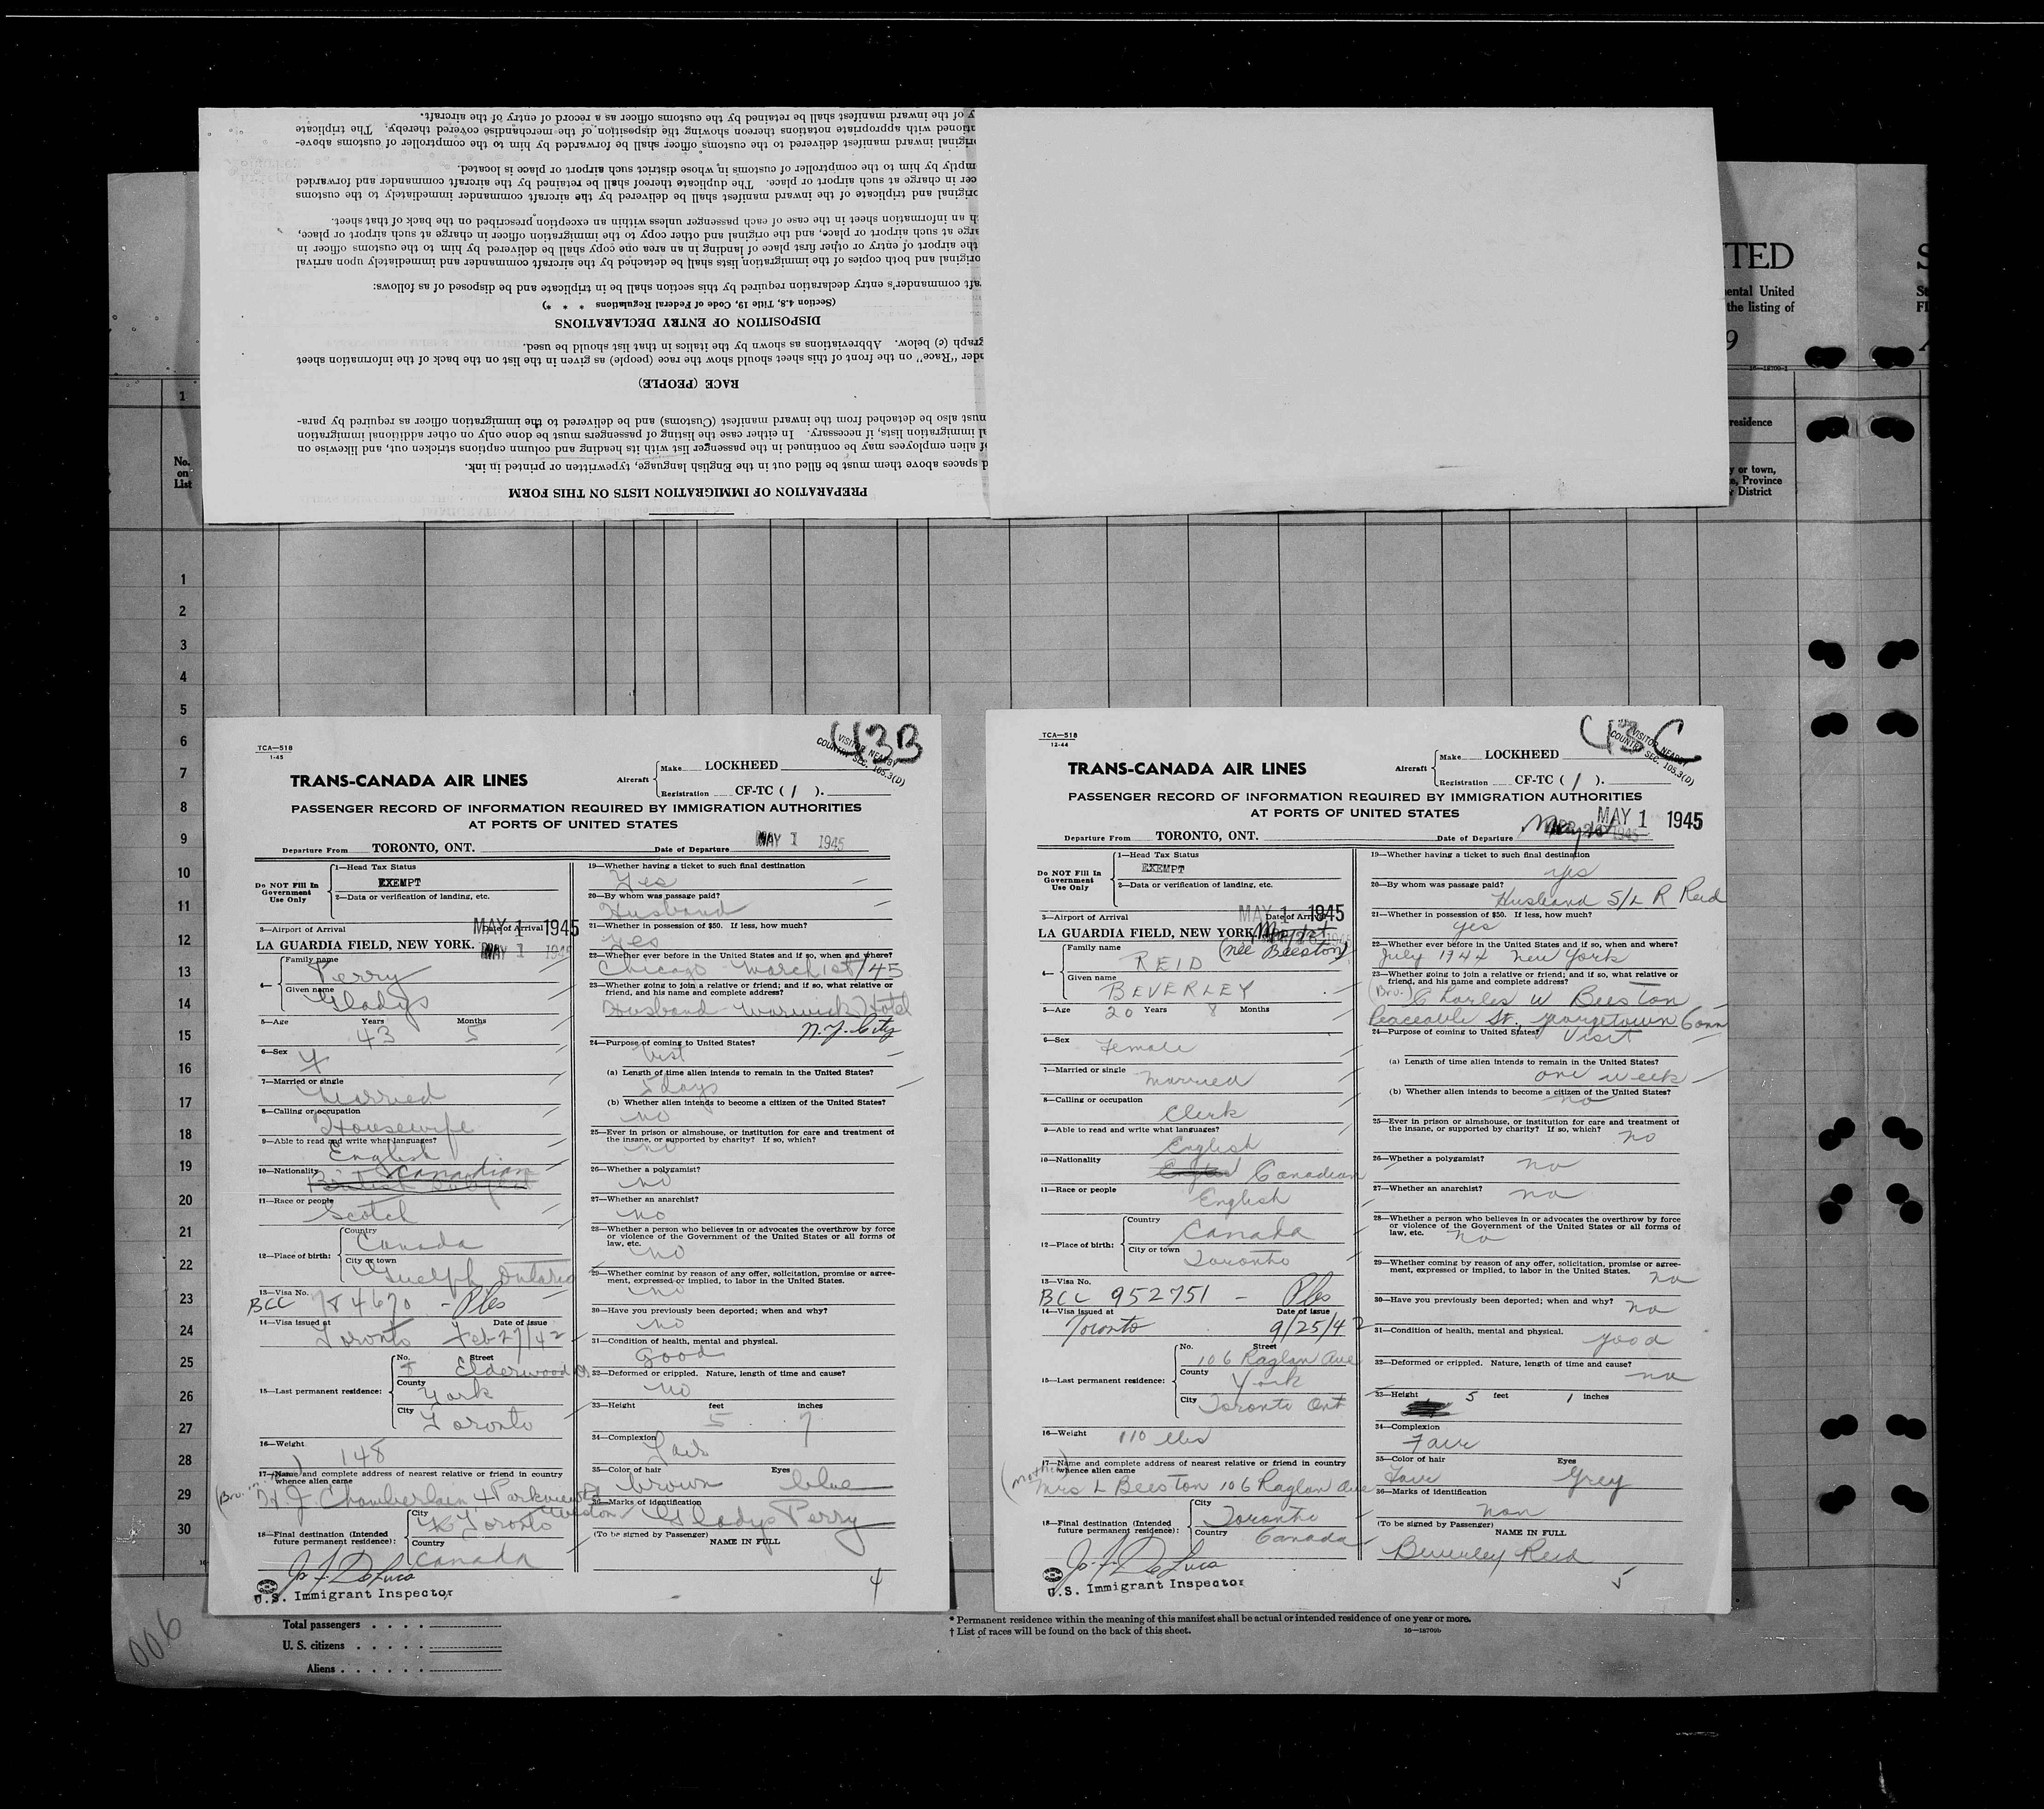 PREPARATION OF IMMIGRATION LISTS ON THIS FORM
d spaces above them must be filled out in the English language, typewritten or printed in ink.
of alien employees may be continued in the passenger list with its heading and column captions stricken out, and likewise on
al immigration lists, if necessary. In either case the listing of passengers must be done only on other additional immigration
must also be detached from the inward manifest (Customs) and be delivered to the immigration officer as required by para-
graph (c) below. Abbreviations as shown by the italics in that list should be used.
RACE (PEOPLE)
nder "Race" on the front of this sheet should show the race (people) as given in the list on the back of the information sheet
DISPOSITION OF ENTRY DECLARATIONS
(Section 4.3, Title 19, Code of Federal Regulations * * *)
aft commander's entry declaration required by this section shall be in triplicate and be disposed of as follows:
original and both copies of the immigration lists shall be detached by the aircraft commander and immediately upon arrival
the airport of entry or other first place of landing in an area one copy shall be delivered by him to the customs officer in
arge at such airport or place, and the original and other copy to the immigration officer in charge at such airport or place,
th an information sheet in the case of each passenger unless within an exception prescribed on the back of that sheet.
original and triplicate of the inward manifest shall be delivered by the aircraft commander immediately to the customs
cer in charge at such airport or place. The duplicate thereof shall be retained by the aircraft commander and forwarded
mptly by him to the comptroller of customs in whose district such airport or place is located.
original inward manifest delivered to the customs officer shall be forwarded by him to the comptroller of customs above-
ntioned with appropriate notations thereon showing the disposition of the merchandise covered thereby. The triplicate
y of the inward manifest shall be retained by the customs officer as a record of entry of the aircraft.
ITED
S
ental United
the listing of
9
residence
y or town,
e, Province
r District
1
No.
on
List
1
2
3
4
5
6
7
8
9
10
11
12
13
14
15
16
17
18
19
20
21
22
23
24
25
26
27
28
29
30
TCA—518
1-45
43B
VISITOR NEARBY
COUNTRY SEC. 105.3(D)
TRANS-CANADA AIR LINES
Aircraft
Make LOCKHEED
Registration CF-TC ( 1 ).
PASSENGER RECORD OF INFORMATION REQUIRED BY IMMIGRATION AUTHORITIES
AT PORTS OF UNITED STATES
Departure From TORONTO, ONT.
Date of Departure MAY 1 1945
Do NOT Fill In
Government
Use Only
1—Head Tax Status
EXEMPT
2—Data or verification of landing, etc.
3—Airport of Arrival
Date of Arrival
MAY 1 1945
LA GUARDIA FIELD, NEW YORK.
MAY 1 1945
4—
Family name
Perry
Given name
Gladys
5—Age Years Months
43 5
6—Sex
F
7—Married or single
Married
8—Calling or occupation
Housewife
9—Able to read and write what languages?
English
10—Nationality Canadian
British Subject
11—Race or people
Scotch
12—Place of birth:
Country
Canada
City or town
Guelph Ontario
13—Visa No.
BCC 784670 - Pbs
14—Visa issued at Date of issue
Toronto Feb 27/42
15—Last permanent residence:
No. Street
8 Elderwood Dr
County
York
City
Toronto
16—Weight
148
17—Name and complete address of nearest relative or friend in country
whence alien came
J. Chamberlain 4 Parkview
Weston
18—Final destination (Intended
future permanent residence):
City
Toronto
Country
Canada
U.S. Immigrant Inspector
19—Whether having a ticket to such final destination
Yes
20—By whom was passage paid?
Husband
21—Whether in possession of $50. If less, how much?
Yes
22—Whether ever before in the United States and if so, when and where?
Chicago March 1st/45
23—Whether going to join a relative or friend; and if so, what relative or
friend, and his name and complete address?
Husband Warwick Hotel
N.Y. City
24—Purpose of coming to United States?
Visit
(a) Length of time alien intends to remain in the United States?
5 days
(b) Whether alien intends to become a citizen of the United States?
no
25—Ever in prison or almshouse, or institution for care and treatment of
the insane, or supported by charity? If so, which?
no
26—Whether a polygamist?
no
27—Whether an anarchist?
no
28—Whether a person who believes in or advocates the overthrow by force
or violence of the Government of the United States or all forms of
law, etc.
no
29—Whether coming by reason of any offer, solicitation, promise or agree-
ment, expressed or implied, to labor in the United States.
no
30—Have you previously been deported; when and why?
no
31—Condition of health, mental and physical.
good
32—Deformed or crippled. Nature, length of time and cause?
no
33—Height feet inches
5 7
34—Complexion
Fair
35—Color of hair Eyes
brown blue
36—Marks of identification
Gladys Perry
(To be signed by Passenger)
NAME IN FULL
4
TCA—518
12-44
43C
VISITOR NEARBY
COUNTRY SEC. 105.3(D)
TRANS-CANADA AIR LINES
Aircraft
Make LOCKHEED
Registration CF-TC ( 1 ).
PASSENGER RECORD OF INFORMATION REQUIRED BY IMMIGRATION AUTHORITIES
AT PORTS OF UNITED STATES
Departure From TORONTO, ONT.
Date of Departure MAY 1 1945
Do NOT Fill In
Government
Use Only
1—Head Tax Status
EXEMPT
2—Data or verification of landing, etc.
3—Airport of Arrival
Date of Arrival
MAY 1 1945
LA GUARDIA FIELD, NEW YORK.
4—
Family name (née Beeston)
REID
Given name
BEVERLEY
5—Age 20 Years 8 Months
6—Sex
Female
7—Married or single
Married
8—Calling or occupation
Clerk
9—Able to read and write what languages?
English
10—Nationality
Canadian
11—Race or people
English
12—Place of birth:
Country
Canada
City or town
Toronto
13—Visa No.
BCC 952751 - Pbs
14—Visa issued at Date of issue
Toronto 9/25/42
15—Last permanent residence:
No. Street
106 Raglan Ave
County
York
City
Toronto Ont
16—Weight 110 lbs
17—Name and complete address of nearest relative or friend in country
whence alien came
(Mother)
Mrs L Beeston 106 Raglan Ave
18—Final destination (Intended
future permanent residence):
City
Toronto
Country
Canada
U.S. Immigrant Inspector
19—Whether having a ticket to such final destination
yes
20—By whom was passage paid?
Husband S/L R Reid
21—Whether in possession of $50. If less, how much?
yes
22—Whether ever before in the United States and if so, when and where?
July 1944 New York
23—Whether going to join a relative or friend; and if so, what relative or
friend, and his name and complete address?
(Bro.) Charles W Beeston
Peaceable St., Georgetown Conn
24—Purpose of coming to United States?
Visit
(a) Length of time alien intends to remain in the United States?
one week
(b) Whether alien intends to become a citizen of the United States?
no
25—Ever in prison or almshouse, or institution for care and treatment of
the insane, or supported by charity? If so, which?
no
26—Whether a polygamist?
no
27—Whether an anarchist?
no
28—Whether a person who believes in or advocates the overthrow by force
or violence of the Government of the United States or all forms of
law, etc.
no
29—Whether coming by reason of any offer, solicitation, promise or agree-
ment, expressed or implied, to labor in the United States.
no
30—Have you previously been deported; when and why?
no
31—Condition of health, mental and physical.
good
32—Deformed or crippled. Nature, length of time and cause?
no
33—Height 5 feet 1 inches
34—Complexion
Fair
35—Color of hair Eyes
Fair Grey
36—Marks of identification
non
(To be signed by Passenger)
NAME IN FULL
Beverley Reid
5
006
Total passengers
U. S. citizens
Aliens
* Permanent residence within the meaning of this manifest shall be actual or intended residence of one year or more.
† List of races will be found on the back of this sheet.
16—18709b